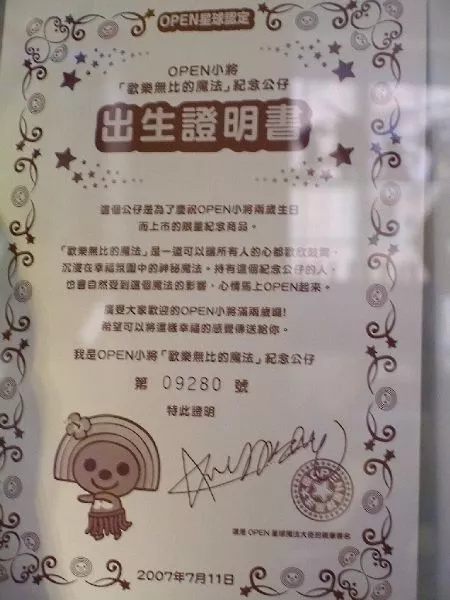 OPEN星球認定
OPEN小將
「歡樂無比的魔法」紀念公仔
出生證明書
這個公仔是為了慶祝OPEN小將兩歲生日
而上市的限量紀念商品。
「歡樂無比的魔法」是一道可以讓所有人的心都歡欣鼓舞,
沉浸在幸福氛圍中的神秘魔法。持有這個紀念公仔的人,
也會自然受到這個魔法的影響,心情馬上OPEN起來。
廣受大家歡迎的OPEN小將滿兩歲囉!
希望可以將這樣幸福的感覺傳送給你。
我是OPEN小將「歡樂無比的魔法」紀念公仔
第 09280 號
特此證明
這是 OPEN 星球魔法大臣的親筆簽名
2007年7月11日